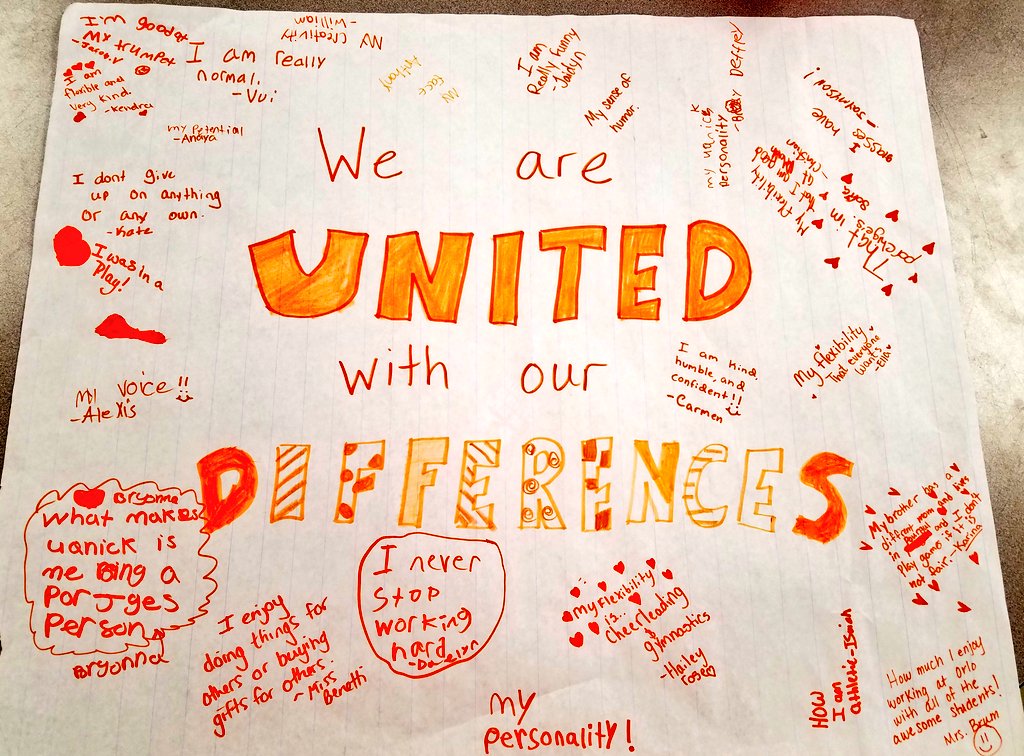 I'm good at
my trumpet
-Jacob.V
I am
flexible and
very kind.
-Kendra
I am really
normal.
-Vui
My creativity
-William
My face
Anthony
I am
Really Funny
-Jaidyn
My sense of
humor.
my uanick
personality
Deffrey
I have
glasses
My flexibility
that I
That
im
Sofia
my Potential
-Anaya
We are
I dont give
up on anything
or any own.
-Kate
I was in a
Play!
UNITED
with our
My voice!!
-Alexis
I am kind,
humble, and
confident!!
-Carmen
My flexibility
That everyone
wants
-Ella
DIFFERENCES
Bryonna
what makes
uanick is
me Bing a
Porjges
Person
Bryonna
I never
stop
working
hard
I enjoy
doing things for
others or buying
gifts for others.
~Miss
Benetti
My flexibility
is...
cheerleading
&
gymnastics
-Hailey
rose
my
personality!
My brother has a
different mom and lives
in and I dont
Play games if it is
not fair. -Karina
HOW
I am
athletic-Isaiah
How much I enjoy
working at Orlo
with all of the
awesome students!
Mrs. Brum